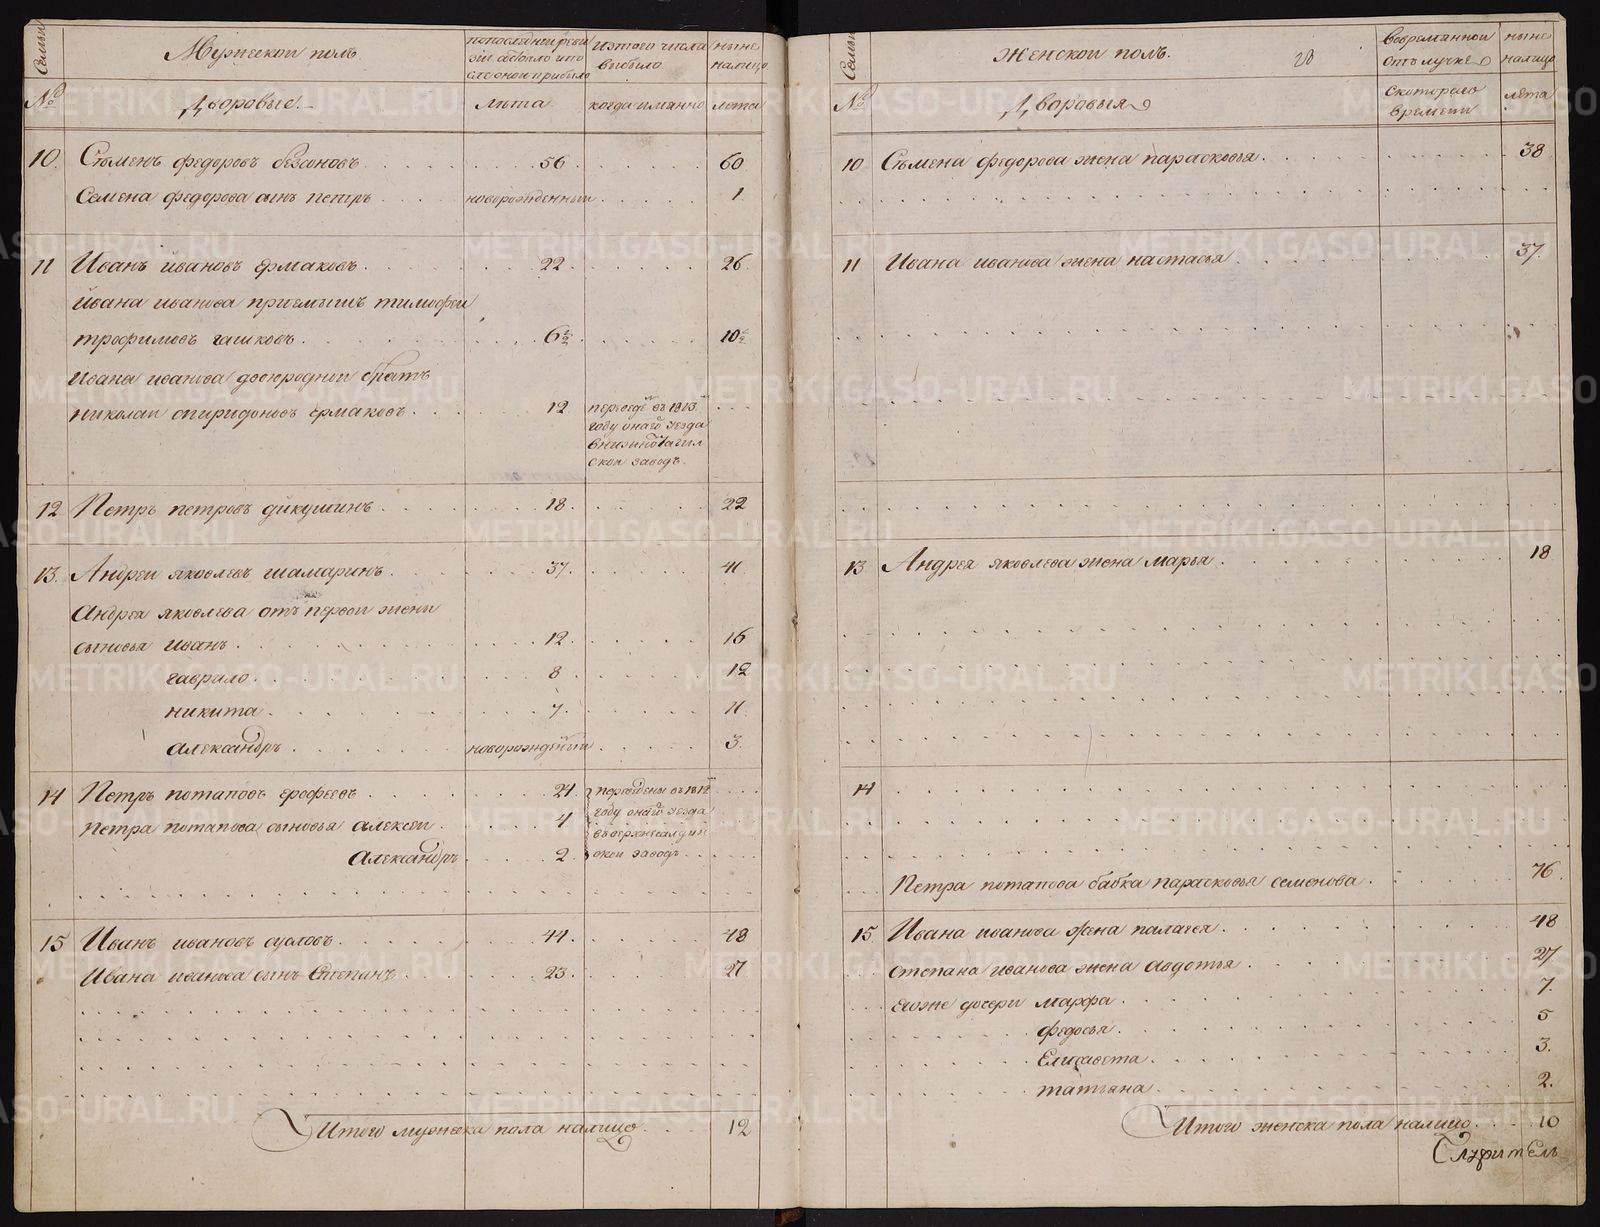 Семьи
Мужеской полъ
по последней реви
зіи состояло и по
сле оной прибыло
изтого числа
выбыло
ныне
налицо
№
Дворовые.
лѣта
когда имянно
лѣта
10. Сѣменъ федоровъ безоновъ 56 60
Семена федорова сынъ петръ новорожденныи 1
11 Иванъ ивановъ ермаковъ 22 26
Ивана иванова приемышъ тимофеи
трофимовъ гашковъ 6½ 10½
Ивана иванова двоюродной братъ
николаи спиридоновъ ермаковъ 12
переведенъ въ 1813м
году онаго уезда
в нижнотагил
ской заводъ.
12 Петръ петровъ дикушинъ 18 22
13. Андреи яковлевъ шамаринъ 37 41
Андрея яковлева отъ первой жены
сыновья Иванъ 12 16
гаврило 8 12
никита 7 11
александръ новорожденныи 3
14 Петръ потаповъ ерофеевъ 21
Петра потапова сыновья алексеи 4
александръ 2
переведены въ 1812м
году онаго уезда
въ верхнесалдин
ской заводъ
15 Иванъ ивановъ сусловъ 44 48
Ивана иванова сынъ Степанъ 23 27
Итого мужеска пола налицо 12
Семьи
Женской полъ.
Вовремянной
отълучке
ныне
налицо
№
Дворовыя
скотораго
времени
лѣта
10 Сѣмена федорова жена парасковья 38
11 Ивана иванова жена настасья 37
13 Андрея яковлева жена марья 18
14
Петра потапова бабка парасковья семенова 76
15 Ивана иванова жена палагея 48
степана иванова жена авдотья 27
евоже дочери марфа 7
федосья 5
Елисавета 3.
татьяна 2.
Итого женска пола налицо 10
Служитель
METRIKI.GASO-URAL.RU